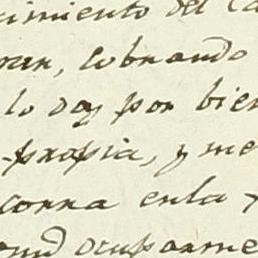 cimiento del Ca
ran, cobrando
lo doy por bien
propia, y me
corra en la
ocuparme